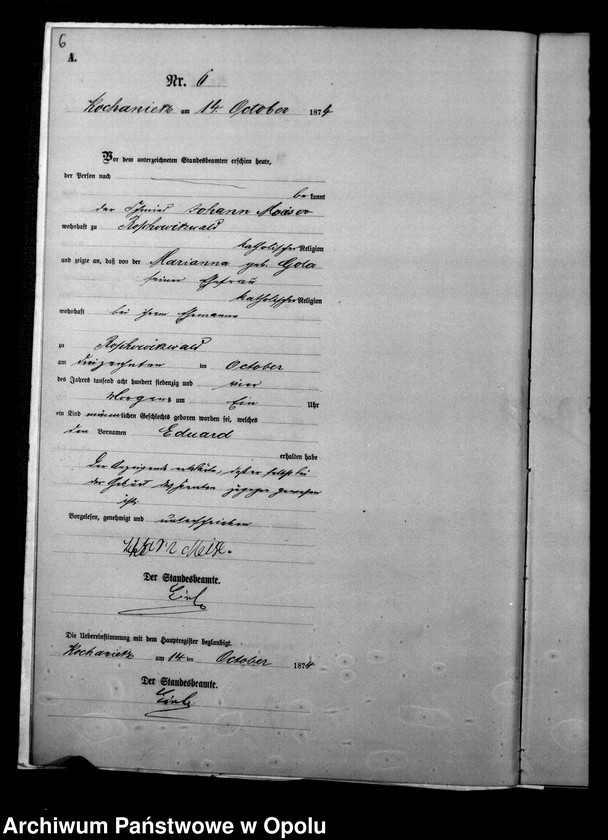 6
A.
Nr. 6
Kochanietz am 14 October 1874
Vor dem unterzeichneten Standesbeamten erschien heute,
der Person nach
bekannt
der Schmied Johann
wohnhaft zu Roschowitzwald
katholischer Religion
und zeigte an, daß von der Marianna geb. Gola
seiner Ehefrau
katholischer Religion
wohnhaft bei ihrem Ehemanne
zu Roschowitzwald
am dreizehnten ten October
des Jahres tausend acht hundert siebenzig und vier
Morgens um Ein Uhr
ein Kind männlichen Geschlechts geboren worden sei, welches
den Vornamen Eduard
erhalten habe
Der Anzeigende erklärte, daß er selbst bei
der Geburt des zugegen gewesen
ist.
Vorgelesen, genehmigt und unterschrieben
Der Standesbeamte.
Die Uebereinstimmung mit dem Hauptregister beglaubigt.
Kochanietz am 14 ten October 1874
Der Standesbeamte.
Archiwum Państwowe w Opolu